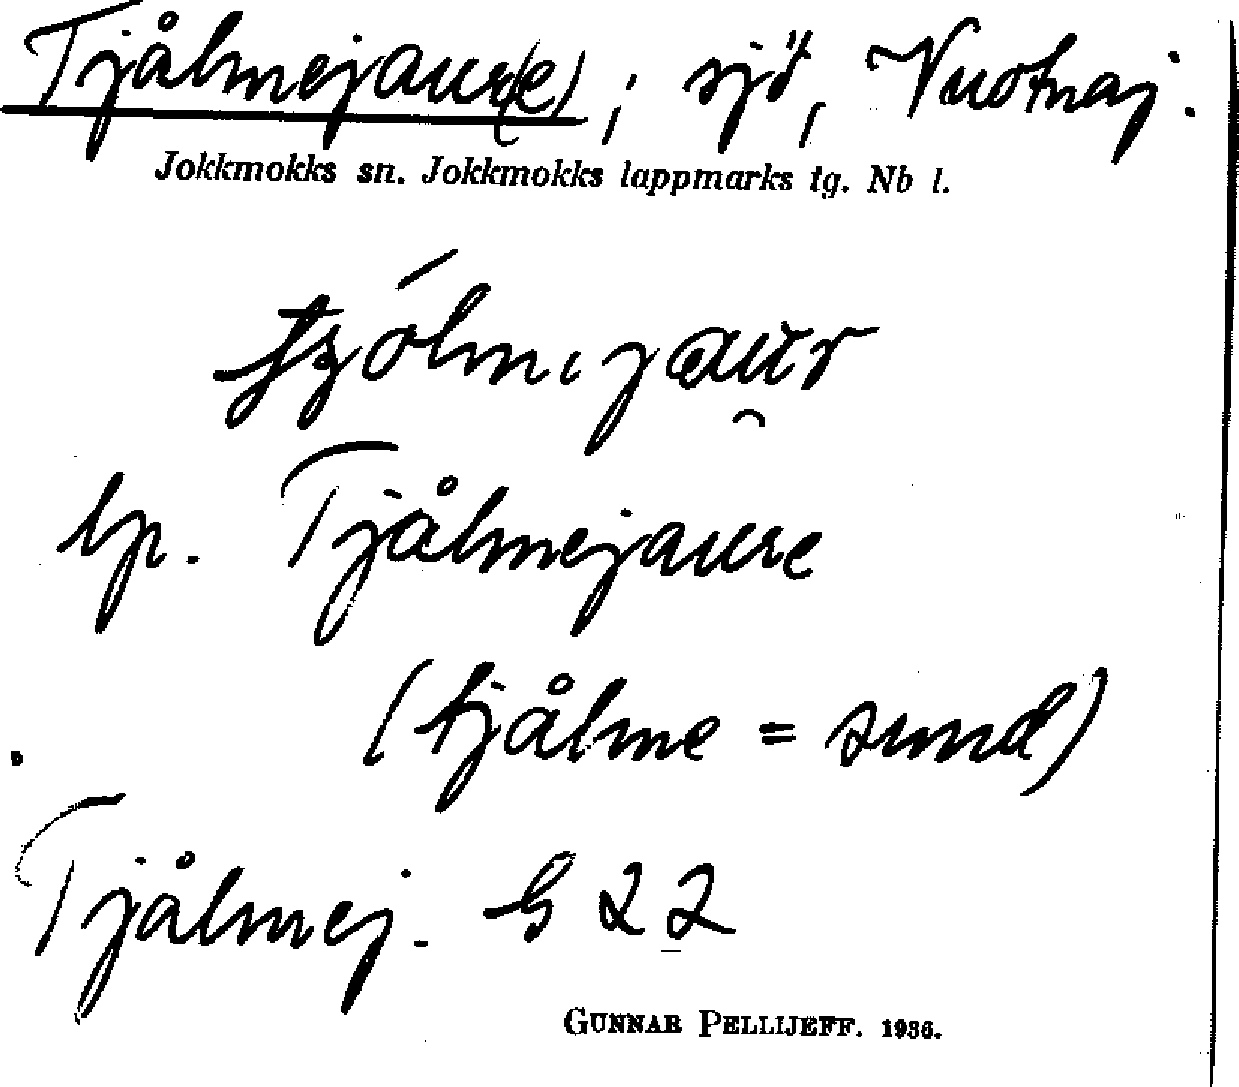 Tjålmejaur(e), sjö, Vuotnaj.
Jokkmokks sn. Jokkmokks lappmarks tg. Nb l.
lp. Tjålmejaure
(tjålme = sund)
Tjålmej. G 22
GUNNAR PELLIJEFF. 1936.